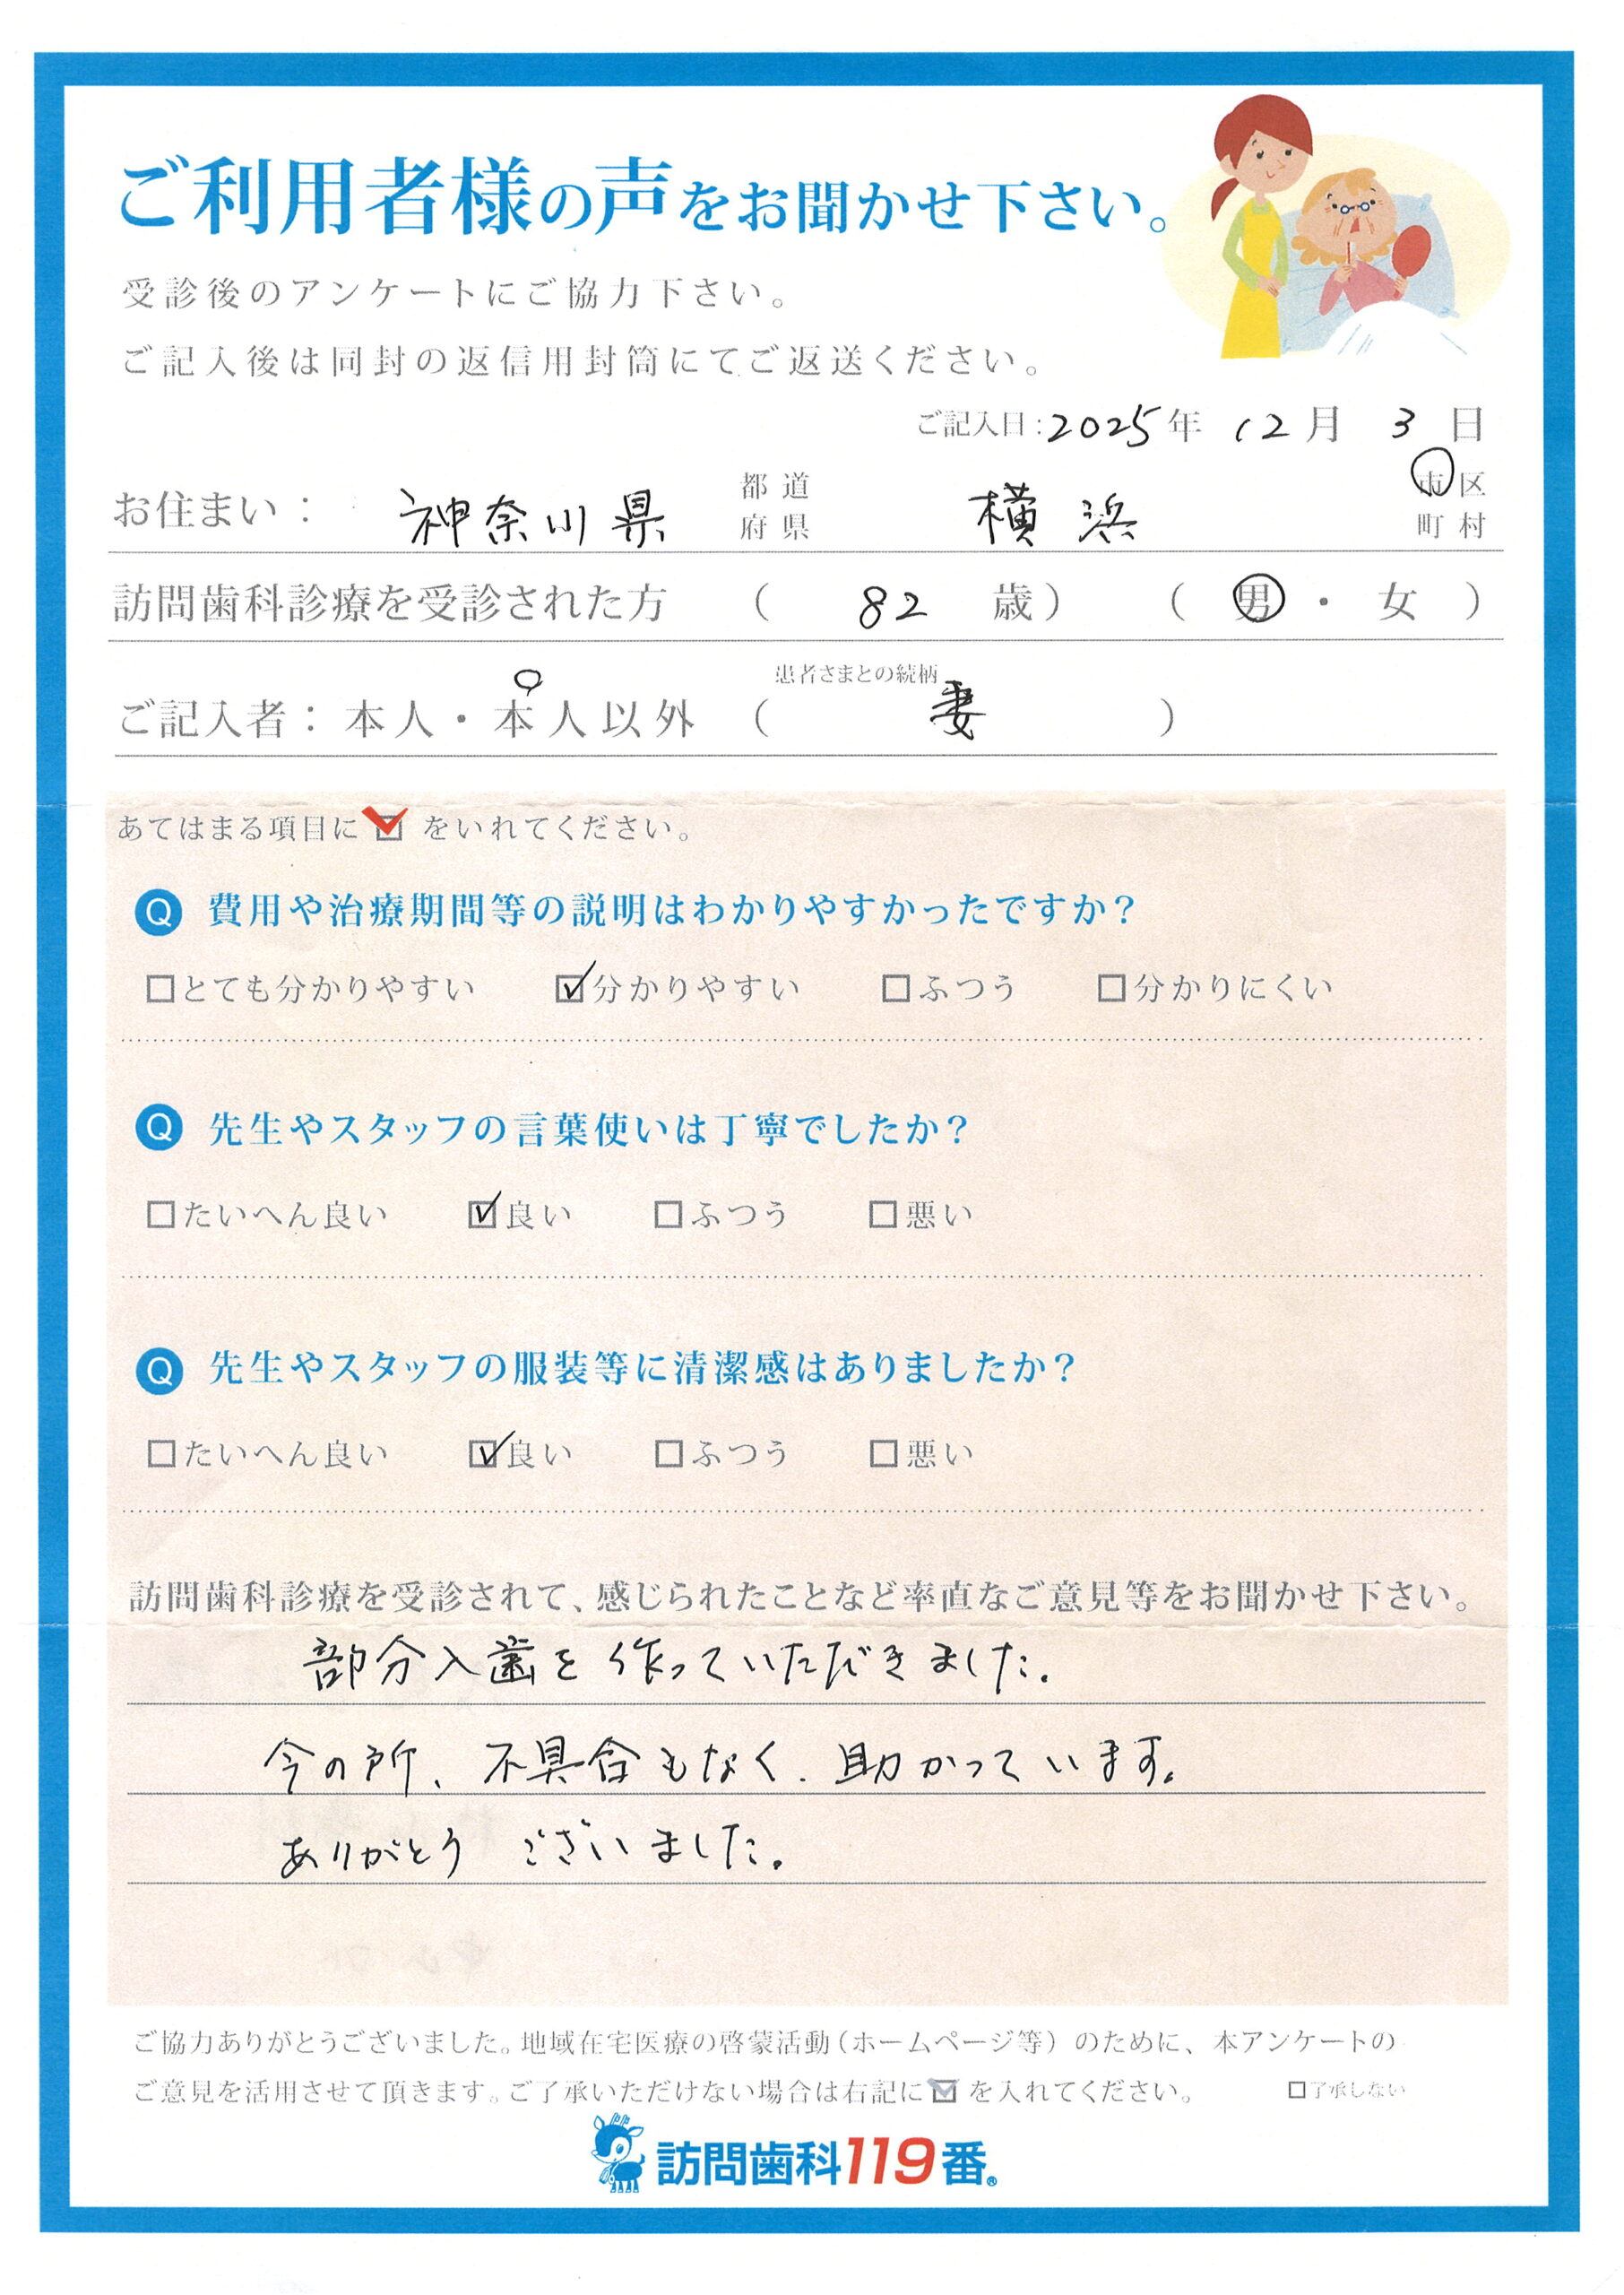 ご利用者様の声をお聞かせ下さい。
受診後のアンケートにご協力下さい。
ご記入後は同封の返信用封筒にてご返送ください。
ご記入日：2025年 12月 3日
お住まい： 神奈川県 都道府県 横浜 市区町村
訪問歯科診療を受診された方 （ 82 歳） （ 男 ・ 女 ）
患者さまとの続柄
ご記入者：本人・本人以外 （ 妻 ）
あてはまる項目に☑をいれてください。
Q 費用や治療期間等の説明はわかりやすかったですか？
□とても分かりやすい ☑分かりやすい □ふつう □分かりにくい
Q 先生やスタッフの言葉使いは丁寧でしたか？
□たいへん良い ☑良い □ふつう □悪い
Q 先生やスタッフの服装等に清潔感はありましたか？
□たいへん良い ☑良い □ふつう □悪い
訪問歯科診療を受診されて、感じられたことなど率直なご意見等をお聞かせ下さい。
部分入歯を作っていただきました。
今の所、不具合もなく、助かっています。
ありがとうございました。
ご協力ありがとうございました。地域在宅医療の啓蒙活動（ホームページ等）のために、本アンケートの
ご意見を活用させて頂きます。ご了承いただけない場合は右記に☑を入れてください。 □了承しない
訪問歯科119番®